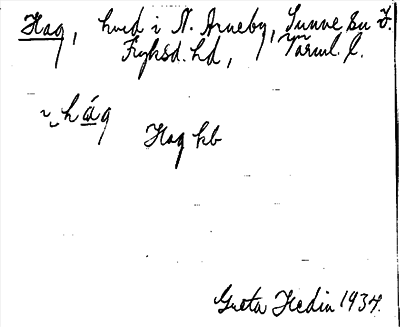 Hag, hmd i N. Arneby, Sunne sn
Fryksd. hd, Värml. l.
hág
Hag kb
Greta Hedin 1934.